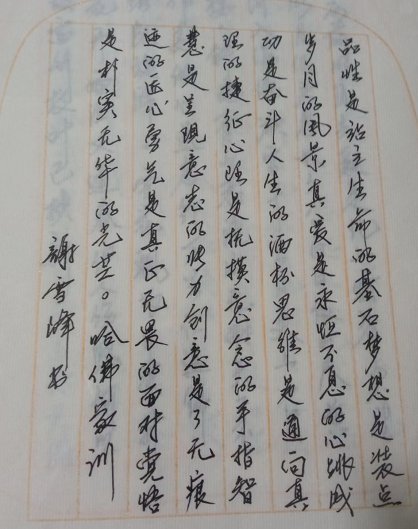 品性是站立生命的基石梦想是装点
岁月的风景真爱是永恒不息的心跳成
功是奋斗人生的酒杯思维是通向真
理的捷径心胜是抚摸意念的手指智
慧是呈现意志的魅力创意是了无痕
迹的匠心勇气是真正无畏的面对觉悟
是朴实无华的光芒。哈佛家训
謝雪峰书